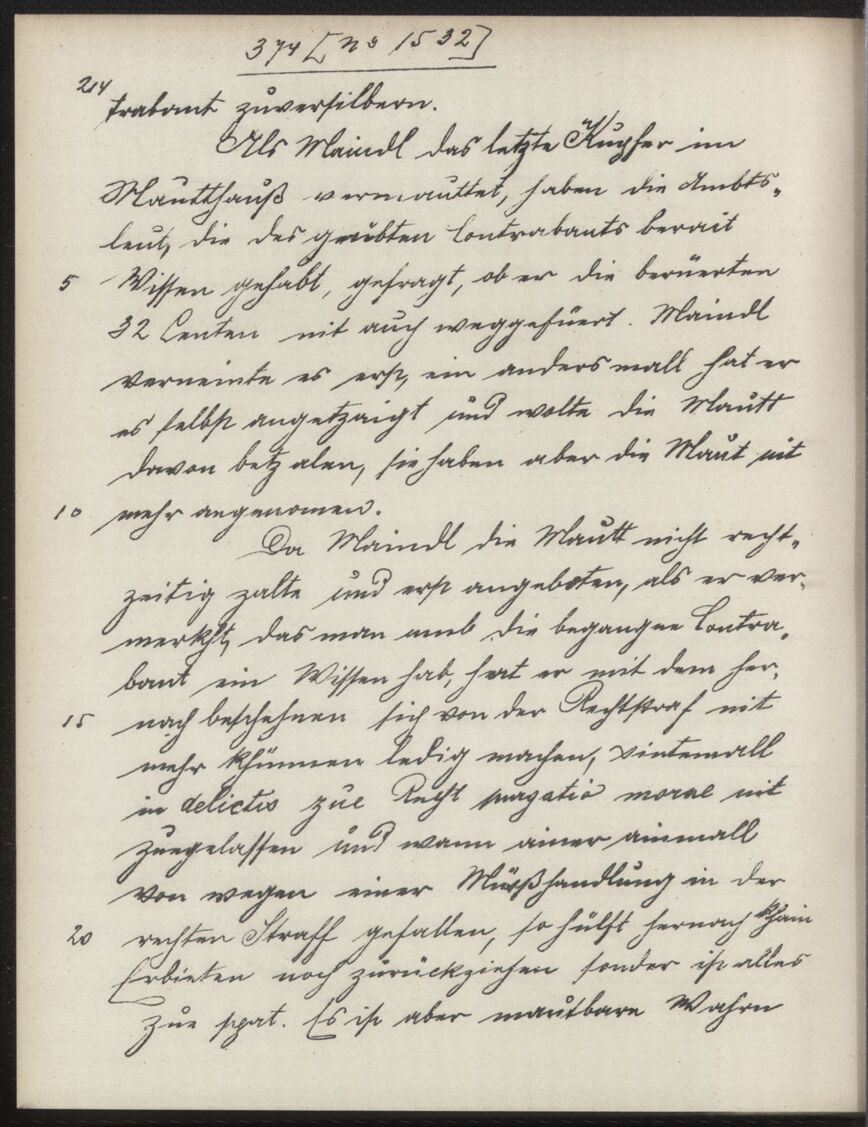 374 [No 1532]
214
trabant zuversilbern.
Als Maindl das letzte Kupfer im
Mautthauß vermauttet, haben die Ambts-
leut, die des geübten Contrabants berait
5 Wissen gehabt, gefragt, ob er die berüerten
32 Centen nit auch weggefüert. Maindl
verneinte es erst, ein anders mall hat er
es selbst angetzaigt und wolte die Mautt
davon betzalen, sie haben aber die Maut nit
10 mehr angenomen.
Da Maindl die Mautt nicht recht-
zeitig zalte und erst angeboten, als er ver-
merkht, das man umb die begangne Contra-
bant ein Wissen hab, hat er mit dem her-
15 nach beschehnen sich von der Rechtstraf nit
mehr khünnen ledig machen, sintemall
in delictis zue Recht purgatio morae nit
zuegelassen und wann ainer ainmall
von wegen einer Müßhandlung in der
20 rechten Straff gefallen, so hülft hernach khain
Erbieten noch zurückziehen sonder ist alles
zue spat. Es ist aber mautbare Wahrn